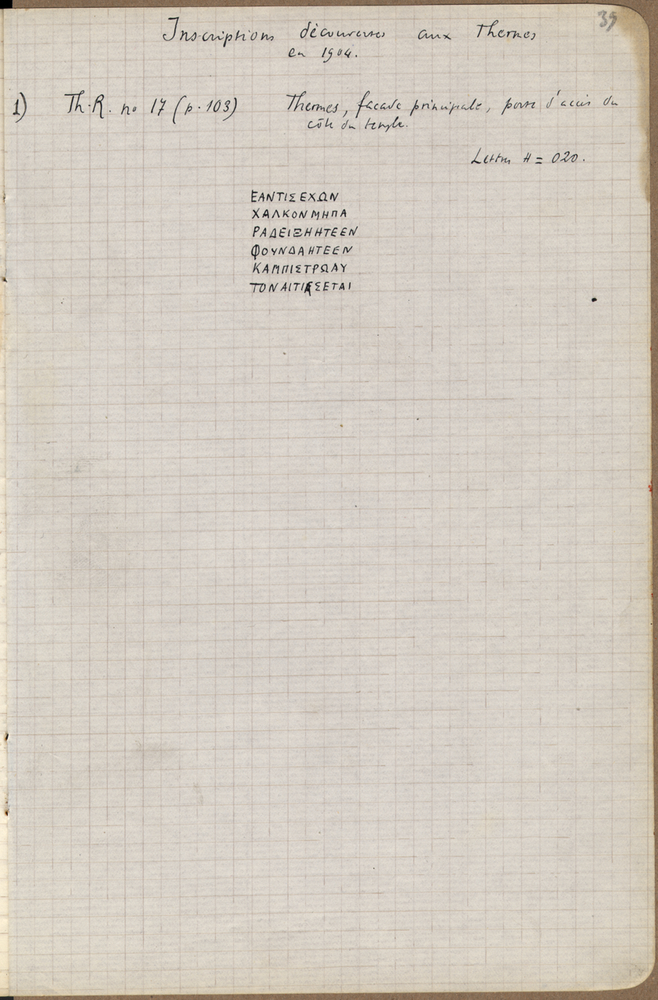 39
Inscriptions découvertes aux Thermes
en 1904.
1) Th. R. no 17 (p. 103) Thermes, façade principale, porte d'accès du
côté du temple.
Lettres H = 020.
ΕΑΝΤΙΣΕΧΩΝ
ΧΑΛΚΟΝΜΗΠΑ
ΡΑΔΕΙΞΗΗΤΕΕΝ
ΦΟΥΝΔΑΗΤΕΕΝ
ΚΑΜΠΙΣΤΡΩΑΥ
ΤΟΝΑΙΤΙΑΣΕΤΑΙ